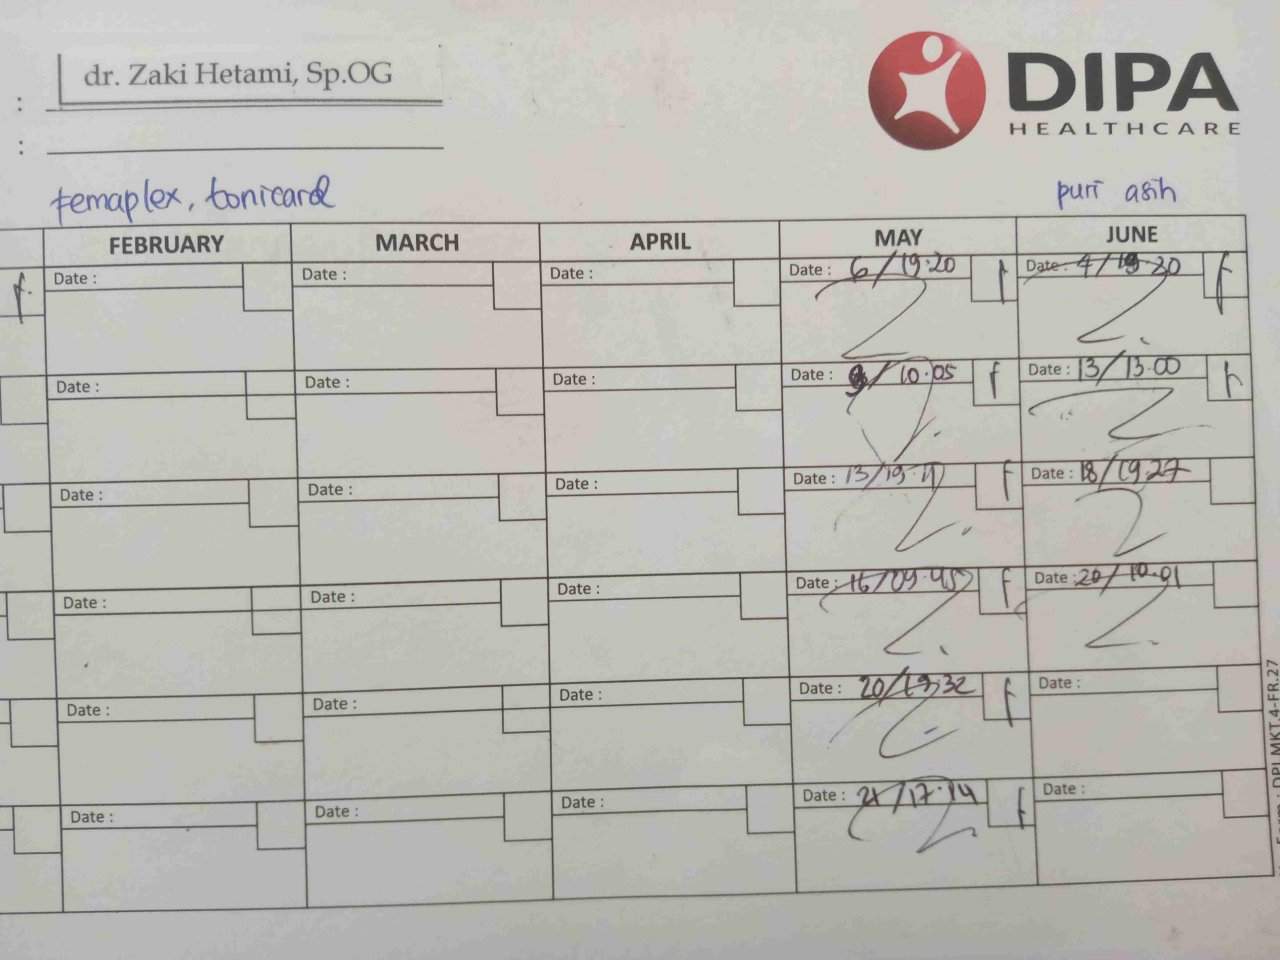 dr. Zaki Hetami, Sp.OG
:
:
DIPA
HEALTHCARE
femaplex, tonicard
puri asih
FEBRUARY MARCH APRIL MAY JUNE
Date : Date : Date : Date : 6/19.20 Date : 4/19.30
Date : Date : Date : Date : 10.05 Date : 13/13.00
Date : Date : Date : Date : 13/19.11 Date : 18/19.27
Date : Date : Date : Date : 16/09.45 Date : 20/10.01
Date : Date : Date : Date : 20/19.32 Date :
Date : Date : Date : Date : 17.14 Date :
DPI.MKT.4-FR.27